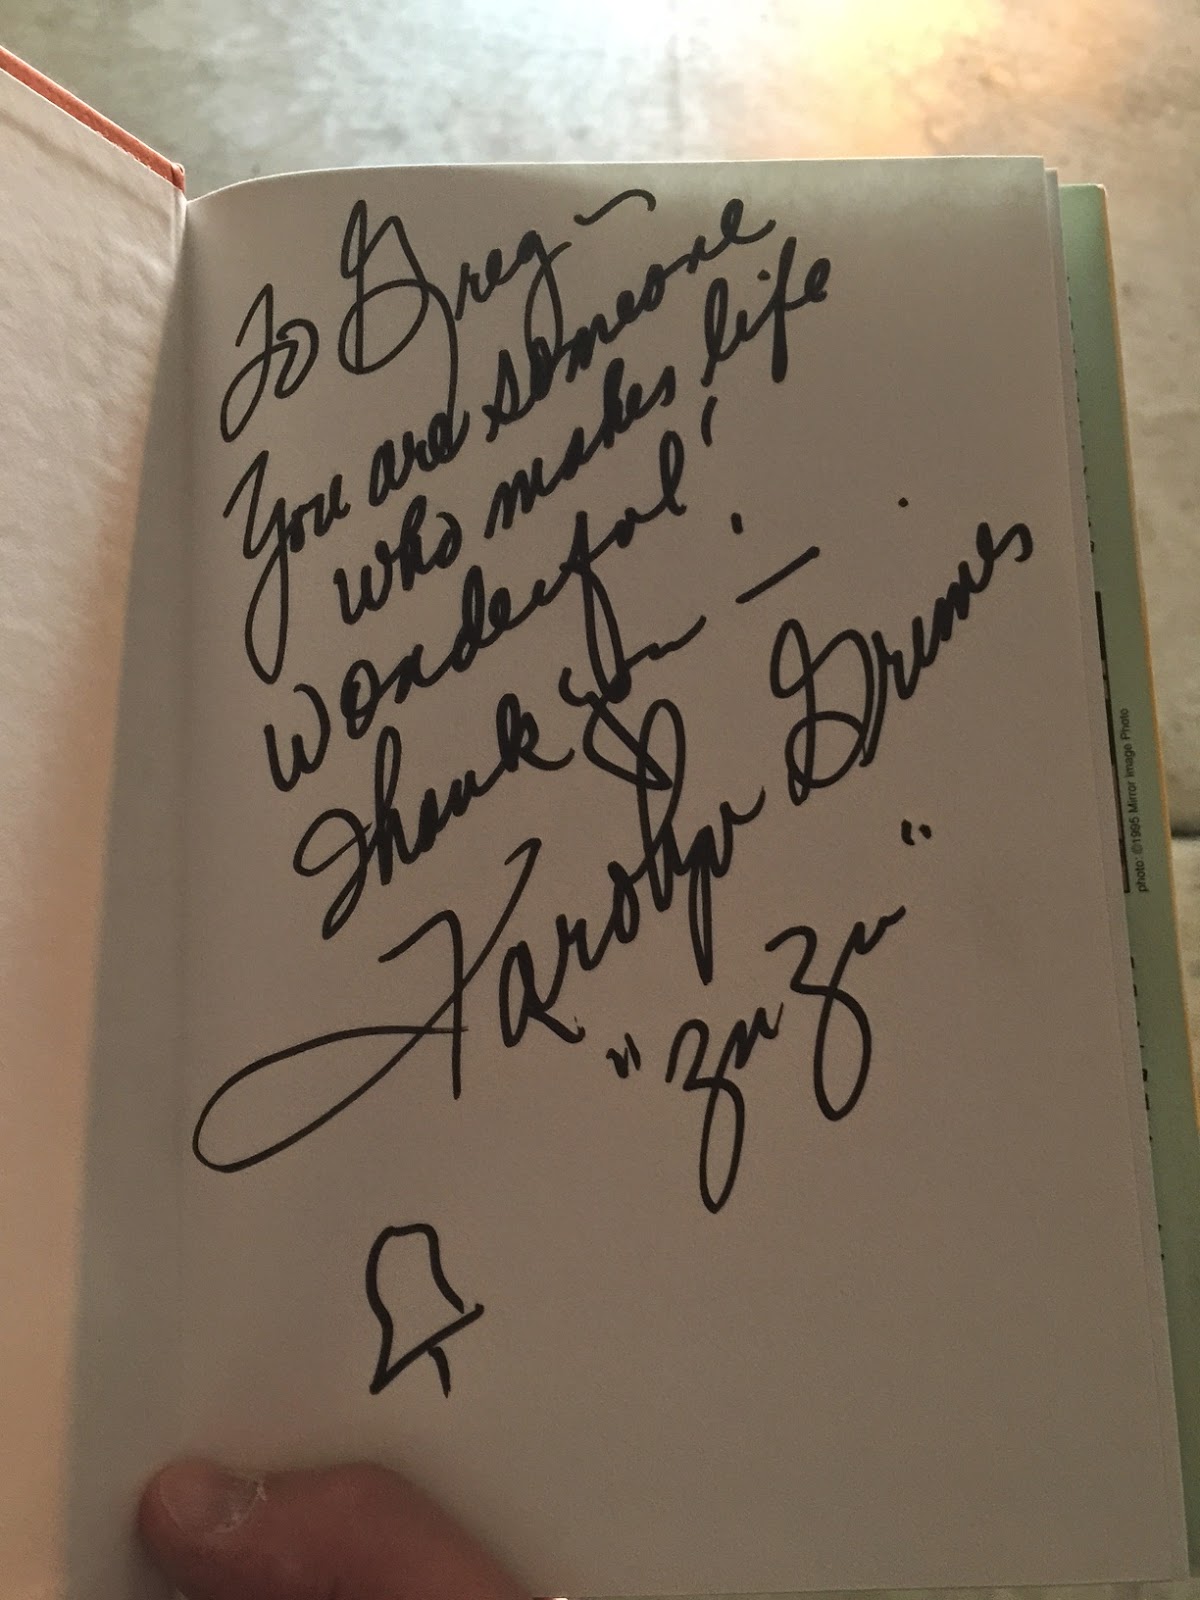 To Greg –
You are someone
who makes life
wonderful!
Thank you –
Karolyn Grimes
"Zuzu"
photo: ©1995 Mirror Image Photo